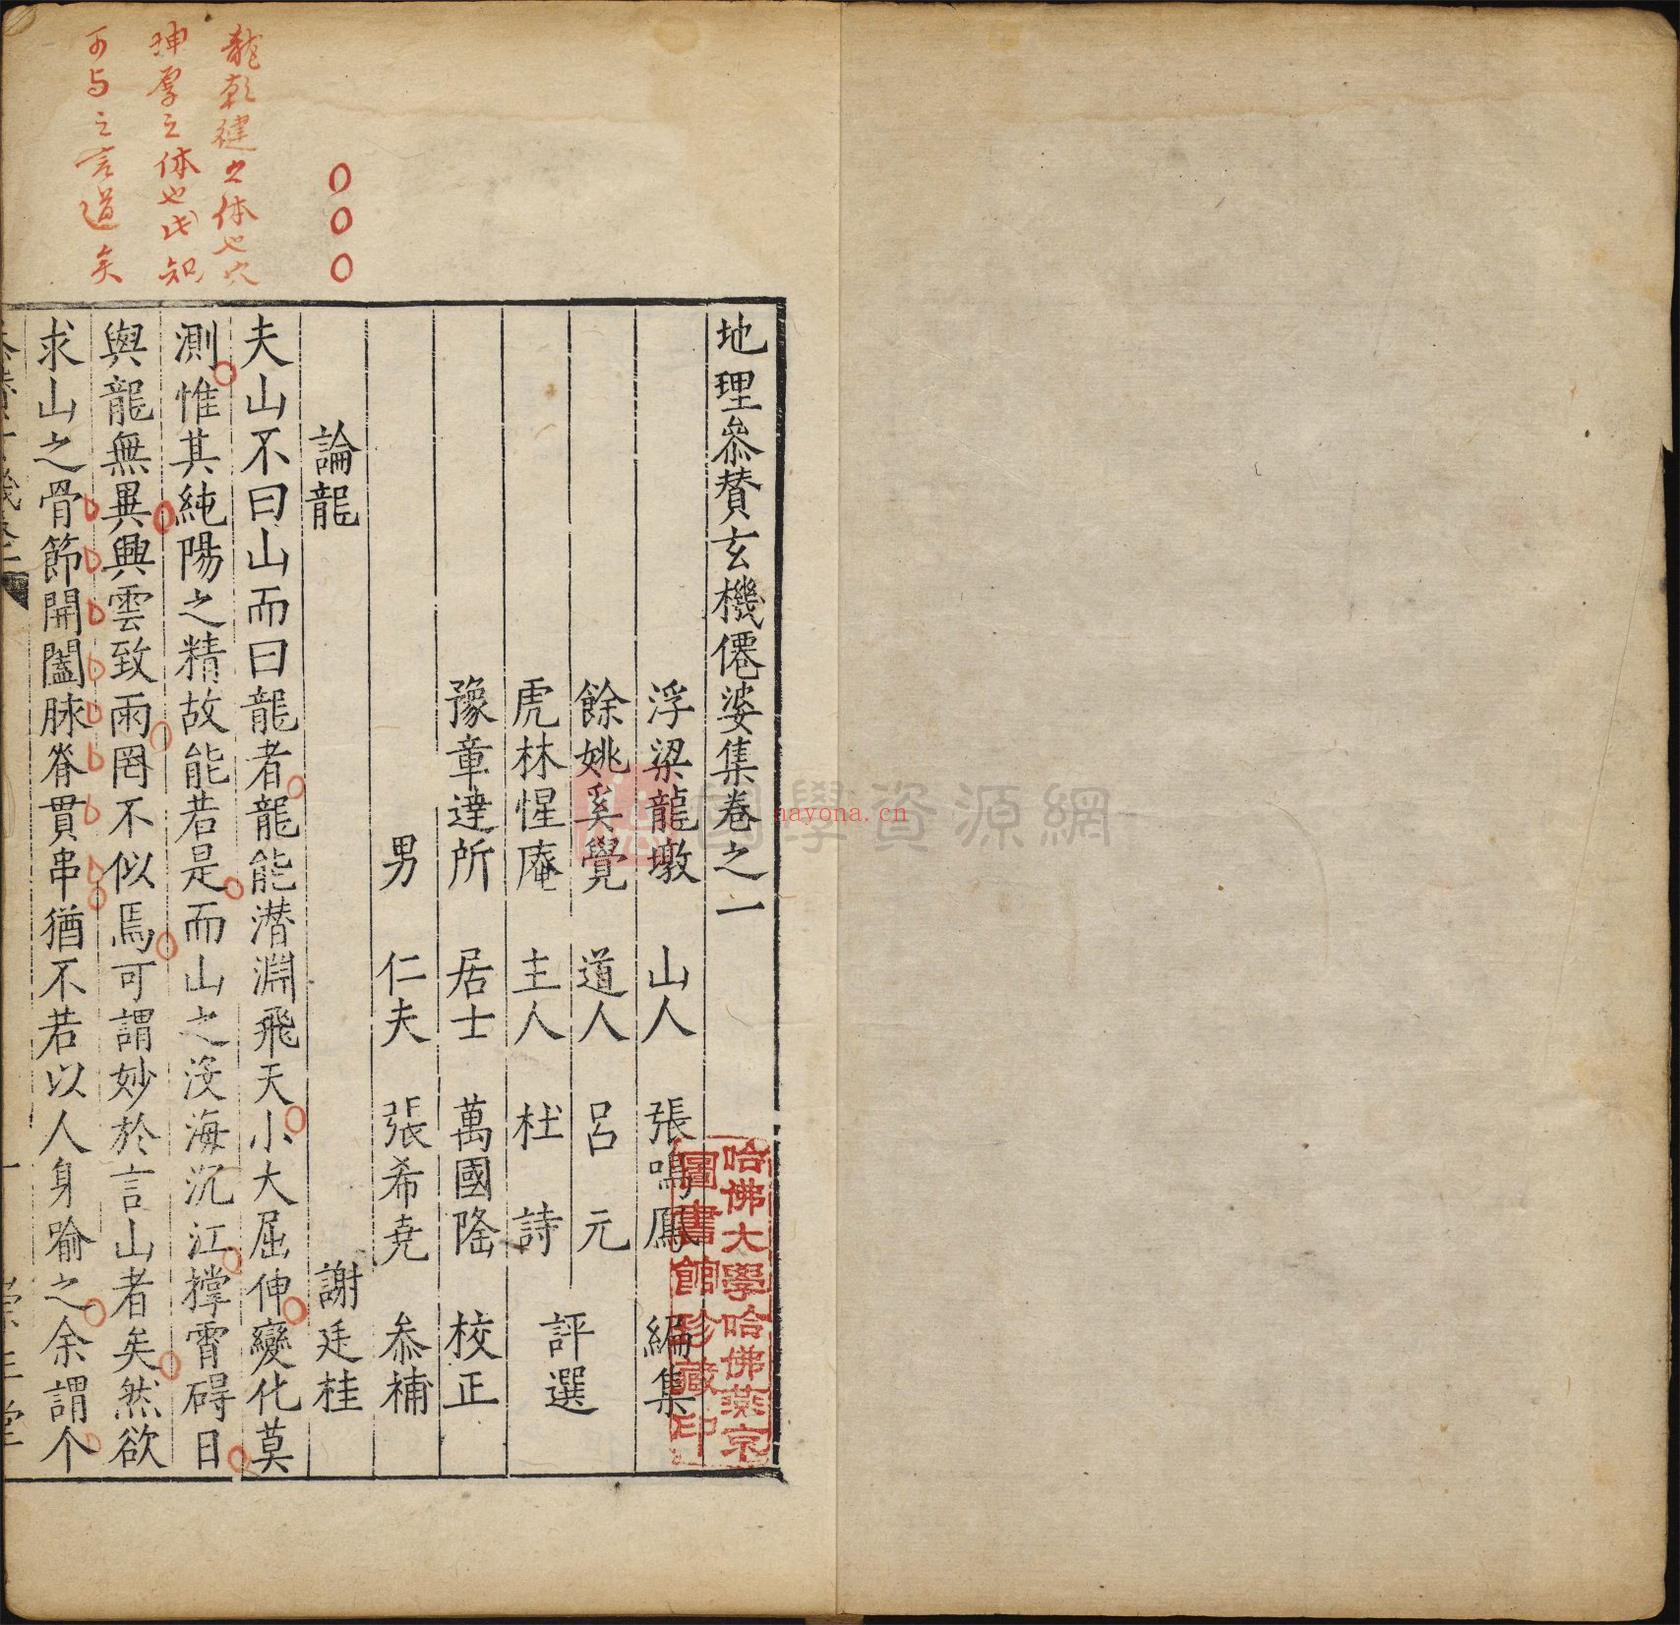 地理叅賛玄機僊婆集卷之一
浮梁龍墩 山人 張鳴鳳 編集
餘姚奚覺 道人 呂元
評選
虎林惺庵 主人 杜詩
豫章達所 居士 萬國隆 校正
男 仁夫 張希堯 叅補
論龍 謝廷桂
夫山不曰山而曰龍者龍能潜淵飛天小大屈伸變化莫
測惟其純陽之精故能若是而山之沒海沉江撑霄碍日
與龍無異興雲致雨罔不似焉可謂妙於言山者矣然欲
求山之骨節開闔脉脊貫串猶不若以人身喻之余謂个
龍乾健之体也穴
坤厚之体也此知
可与之言道矣
哈佛大學哈佛燕京
圖書館珍藏印
國學資源網
nayona.cn